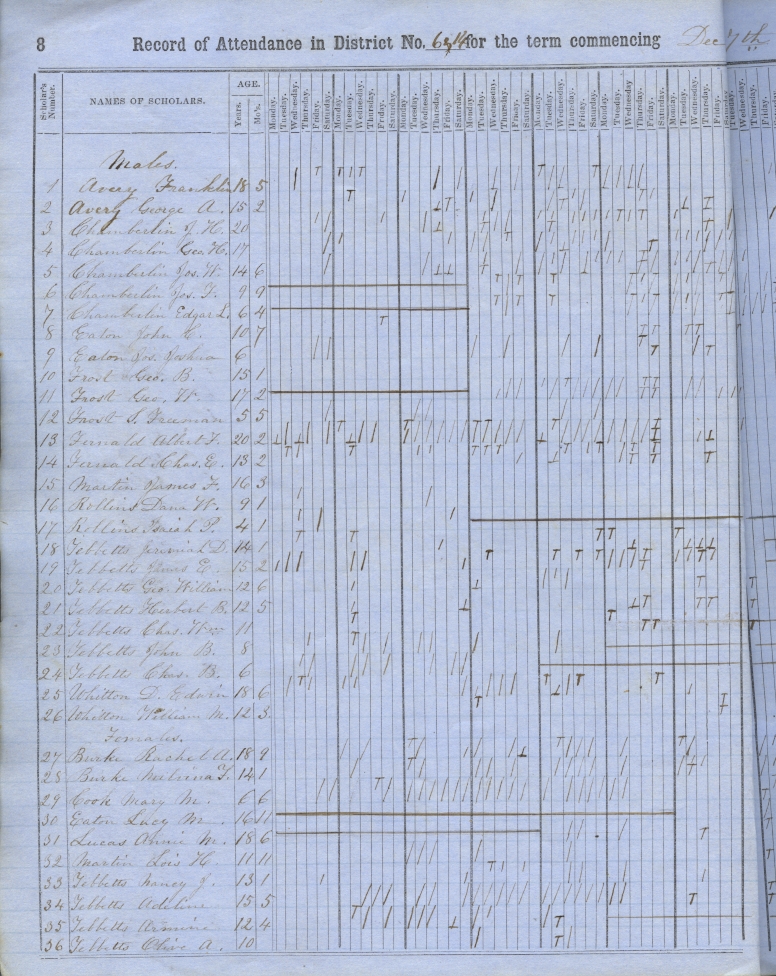 8 Record of Attendance in District No. 6 & 14 for the term commencing Dec 7th
Scholar's Number. NAMES OF SCHOLARS. AGE.
Years. Mo's. Monday. Tuesday. Wednesday. Thursday. Friday. Saturday. Monday. Tuesday. Wednesday. Thursday. Friday. Saturday. Monday. Tuesday. Wednesday. Thursday. Friday. Saturday. Monday. Tuesday. Wednesday. Thursday. Friday. Saturday. Monday. Tuesday. Wednesday. Thursday. Friday. Saturday. Monday. Tuesday. Wednesday. Thursday. Friday. Saturday. Monday. Tuesday. Wednesday. Thursday. Friday. Saturday.
Males.
1 Avery Franklin 18 5
2 Avery George A. 15 2
3 Chamberlin J. H. 20
4 Chamberlin Geo. H. 17
5 Chamberlin Jos. W. 14 6
6 Chamberlin Jas. F. 9 9
7 Chamberlin Edgar L. 6 4
8 Eaton John C. 10 7
9 Eaton Jos. Joshua 6
10 Frost Geo. B. 15 1
11 Frost Geo. W. 17 2
12 Frost S. Freeman 5 5
13 Fernald Albert F. 20 2
14 Fernald Chas. E. 13 2
15 Martin James F. 16 3
16 Rollins Dana W. 9 1
17 Rollins Isaiah P. 4 1
18 Tebbetts Jeremiah D. 14 1
19 Tebbetts E. 15 2
20 Tebbetts Geo. William 12 6
21 Tebbetts Herbert B. 12 5
22 Tebbetts Chas. Wm 11
23 Tebbetts John B. 8
24 Tebbetts Chas. B. 6
25 Whitton D. Edwin 18 6
26 Whitton William M. 12 3
Females.
27 Burke Rachel A. 18 9
28 Burke Melvina F. 14 1
29 Cook Mary M. 6 6
30 Eaton Lucy M. 16 11
31 Lucas Annie M. 18 6
32 Martin Lois H. 11 11
33 Tebbetts Nancy J. 13 1
34 Tebbetts Adeline 15 5
35 Tebbetts Armine 12 4
36 Tebbetts Olive A. 10